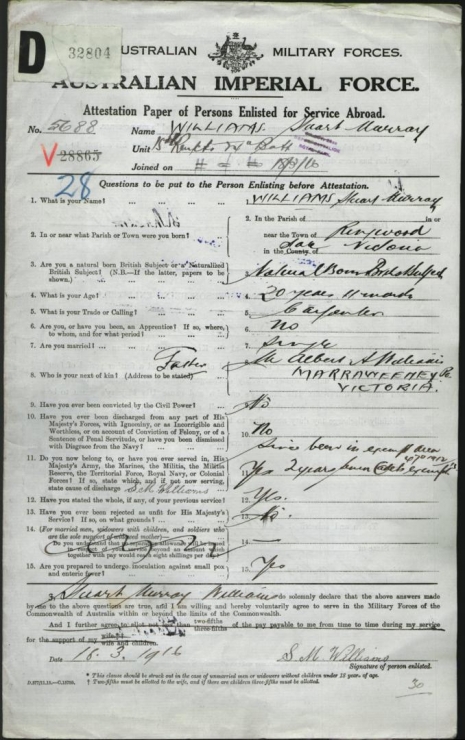 D
32804
AUSTRALIAN MILITARY FORCES.
AUSTRALIAN IMPERIAL FORCE.
Attestation Paper of Persons Enlisted for Service Abroad.
No. 5688 Name WILLIAMS Stuart Murray
Unit
V 28865
Joined on 18/3/16
28 Questions to be put to the Person Enlisting before Attestation.
1. What is your Name? 1. WILLIAMS Stuart Murray
2. In or near what Parish or Town were you born? 2. In the Parish of in or
near the Town of Ringwood
in the County of Victoria
3. Are you a natural born British Subject or a Naturalized
British Subject? (N.B.—If the latter, papers to be
shown.) 3. Natural Born British Subject
4. What is your Age? 4. 20 years 11 months
5. What is your Trade or Calling? 5. Carpenter
6. Are you, or have you been, an Apprentice? If so, where,
to whom, and for what period? 6. No
7. Are you married? 7. Single
8. Who is your next of kin? (Address to be stated) Father 8. Mr Albert A Williams
MARRAWEENEY
VICTORIA.
9. Have you ever been convicted by the Civil Power? 9. No
10. Have you ever been discharged from any part of His
Majesty's Forces, with Ignominy, or as Incorrigible and
Worthless, or on account of Conviction of Felony, or of a
Sentence of Penal Servitude, or have you been dismissed
with Disgrace from the Navy? 10. No
11. Do you now belong to, or have you ever served in, His
Majesty's Army, the Marines, the Militia, the Militia
Reserve, the Territorial Force, Royal Navy, or Colonial
Forces? If so, state which, and if not now serving,
state cause of discharge S. M. Williams 11. Yes 2 years
Since been in exempt area
12. Have you stated the whole, if any, of your previous service? 12. Yes.
13. Have you ever been rejected as unfit for His Majesty's
Service? If so, on what grounds? 13. No
14. (For married men, widowers with children, and soldiers who
are the sole support of widowed mother)—
Do you understand that no separation allowance will be issued
in respect of your service beyond an amount which
together with pay would reach eight shillings per day? 14. —
15. Are you prepared to undergo inoculation against small pox
and enteric fever? 15. Yes
I, Stuart Murray Williams do solemnly declare that the above answers made
by me to the above questions are true, and I am willing and hereby voluntarily agree to serve in the Military Forces of the
Commonwealth of Australia within or beyond the limits of the Commonwealth.
And I further agree to allot not less than two-fifths three-fifths of the pay payable to me from time to time during my service
for the support of my wife wife and children.
Date 16.3.1916 S. M. Williams
Signature of person enlisted.
* This clause should be struck out in the case of unmarried men or widowers without children under 18 years of age.
† Two-fifths must be allotted to the wife, and if there are children three-fifths must be allotted.
30